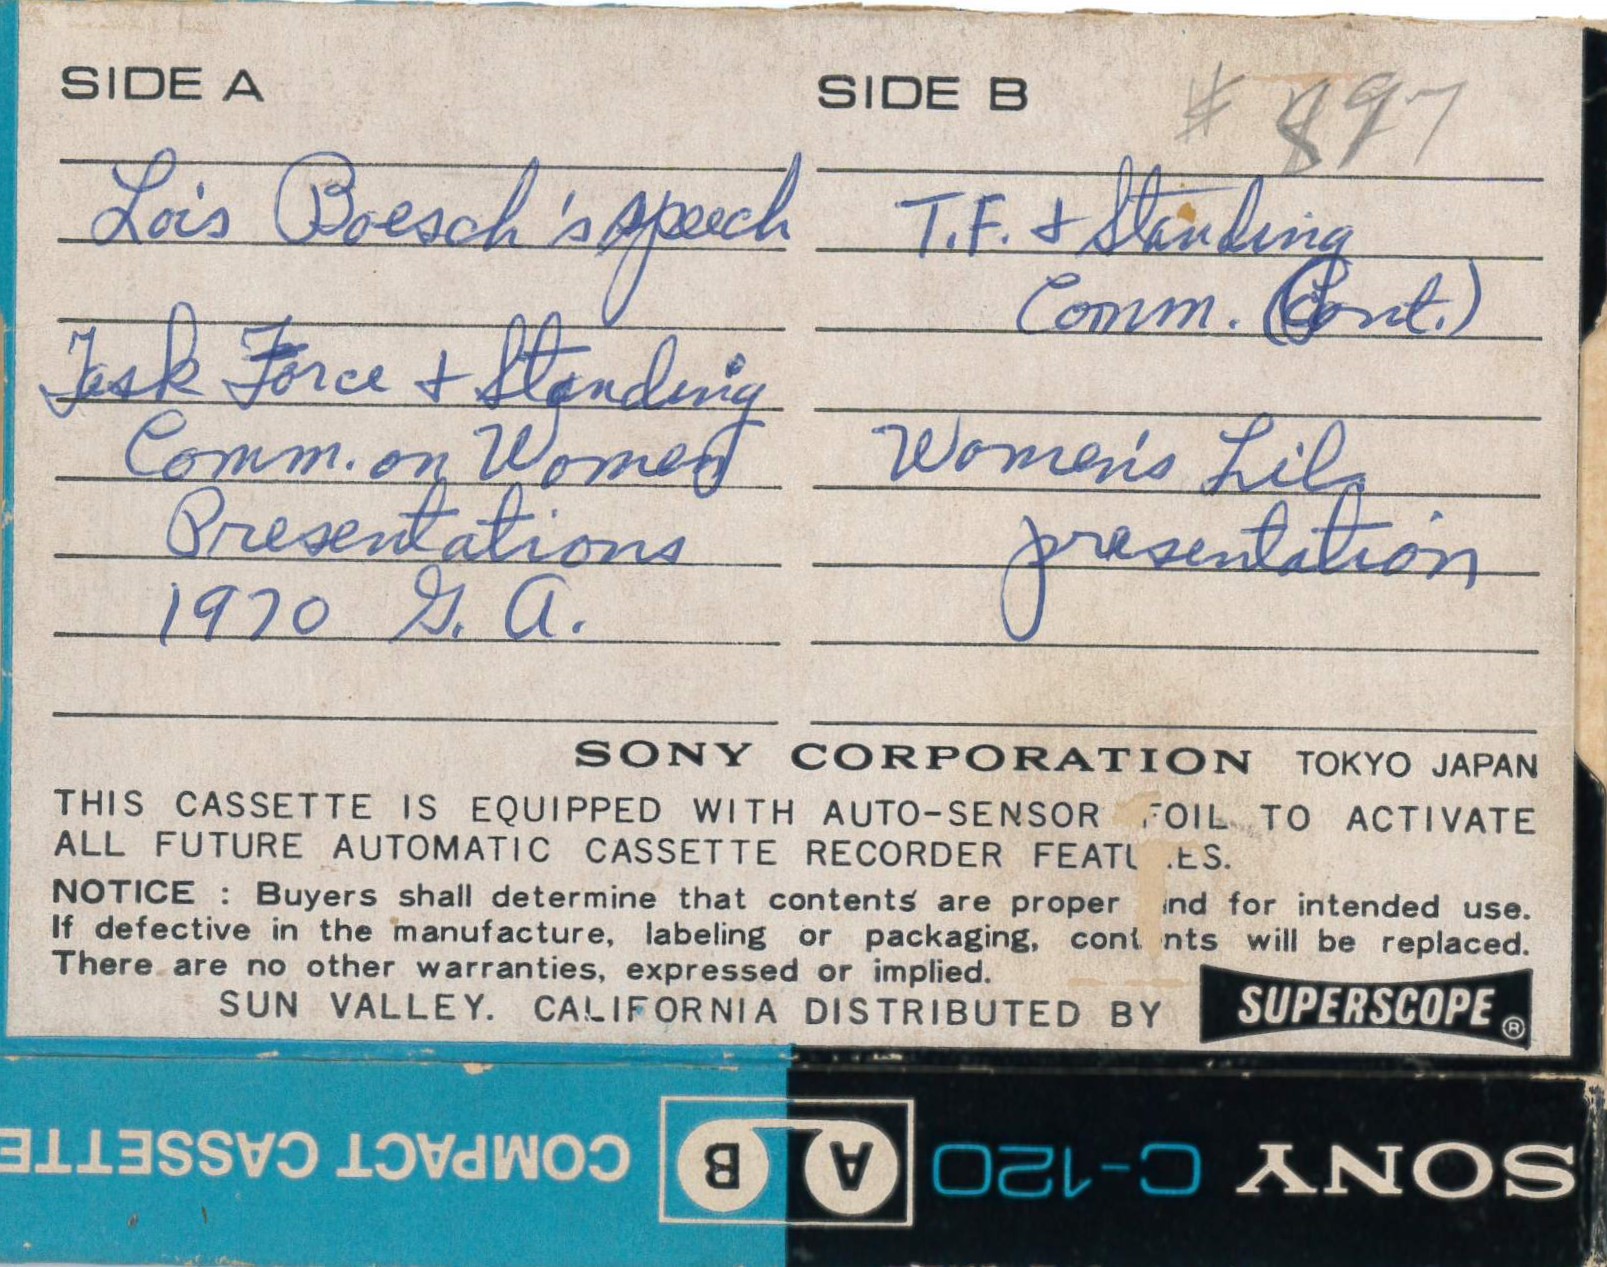 SIDE A
Lois Boesch's speech
Task Force + Standing
Comm. on Women
Presentations
1970 G. A.
SIDE B # 897
T.F. + Standing
Comm. (Cont.)
Women's Lib.
presentation
SONY CORPORATION TOKYO JAPAN
THIS CASSETTE IS EQUIPPED WITH AUTO-SENSOR FOIL TO ACTIVATE
ALL FUTURE AUTOMATIC CASSETTE RECORDER FEATURES.
NOTICE : Buyers shall determine that contents are proper and for intended use.
If defective in the manufacture, labeling or packaging, contents will be replaced.
There are no other warranties, expressed or implied.
SUN VALLEY. CALIFORNIA DISTRIBUTED BY SUPERSCOPE ®
SONY C-120 A B COMPACT CASSETTE